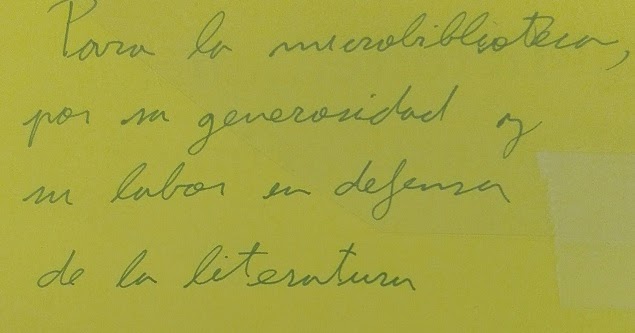 Para la microbiblioteca,
por su generosidad y
su labor en defensa
de la literatura